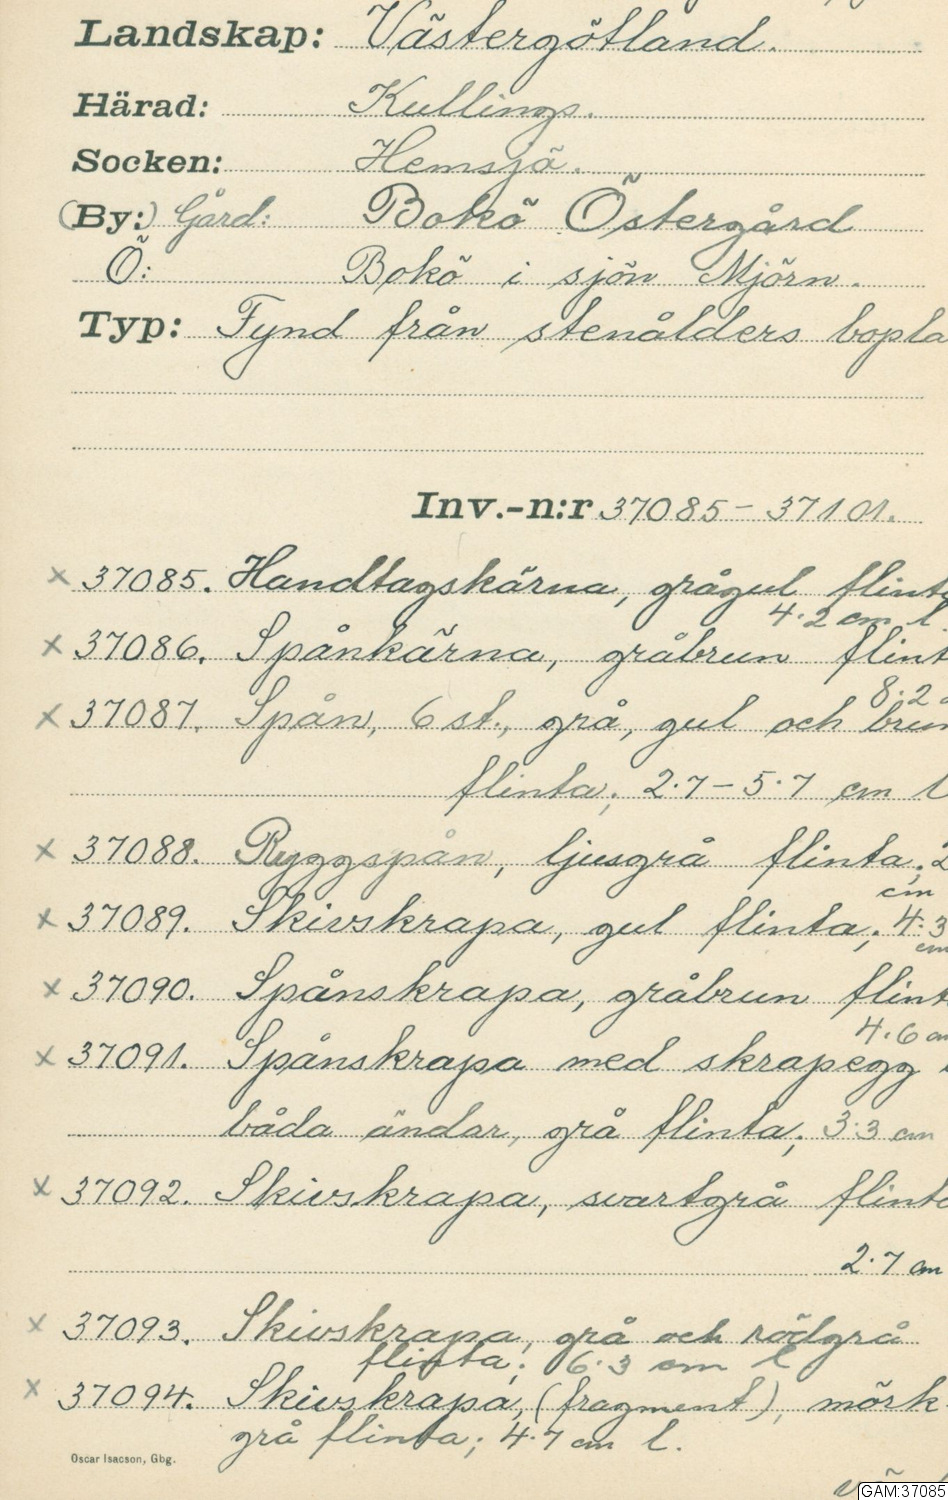 Landskap: Västergötland.
Härad: Kullings.
Socken: Hemsjö.
(By:) Gård: Bokö Östergård
Ö: Bokö i sjön Mjörn.
Typ: Fynd från stenålders bopla
Inv.-n:r 37085 – 37101.
x 37085. Handtagskärna, grågul flint
4.2 cm l.
x 37086. Spånkärna, gråbrun flint
8.2
x 37087. Spån, 6 st., grå, gul och brun
flinta; 2.7 – 5.7 cm l
x 37088. Ryggspån, ljusgrå flinta; 2
cm
x 37089. Skivskrapa, gul flinta; 4.3
cm
x 37090. Spånskrapa, gråbrun flint
4.6 cm
x 37091. Spånskrapa med skrapegg
båda ändar, grå flinta; 3.3 cm
x 37092. Skivskrapa, svartgrå flinta
2.7 cm
x 37093. Skivskrapa, grå och rödgrå
flinta; 6.3 cm l
x 37094. Skivskrapa, (fragment), mörk-
grå flinta; 4.7 cm l.
Oscar Isacson, Gbg.
GAM:37085